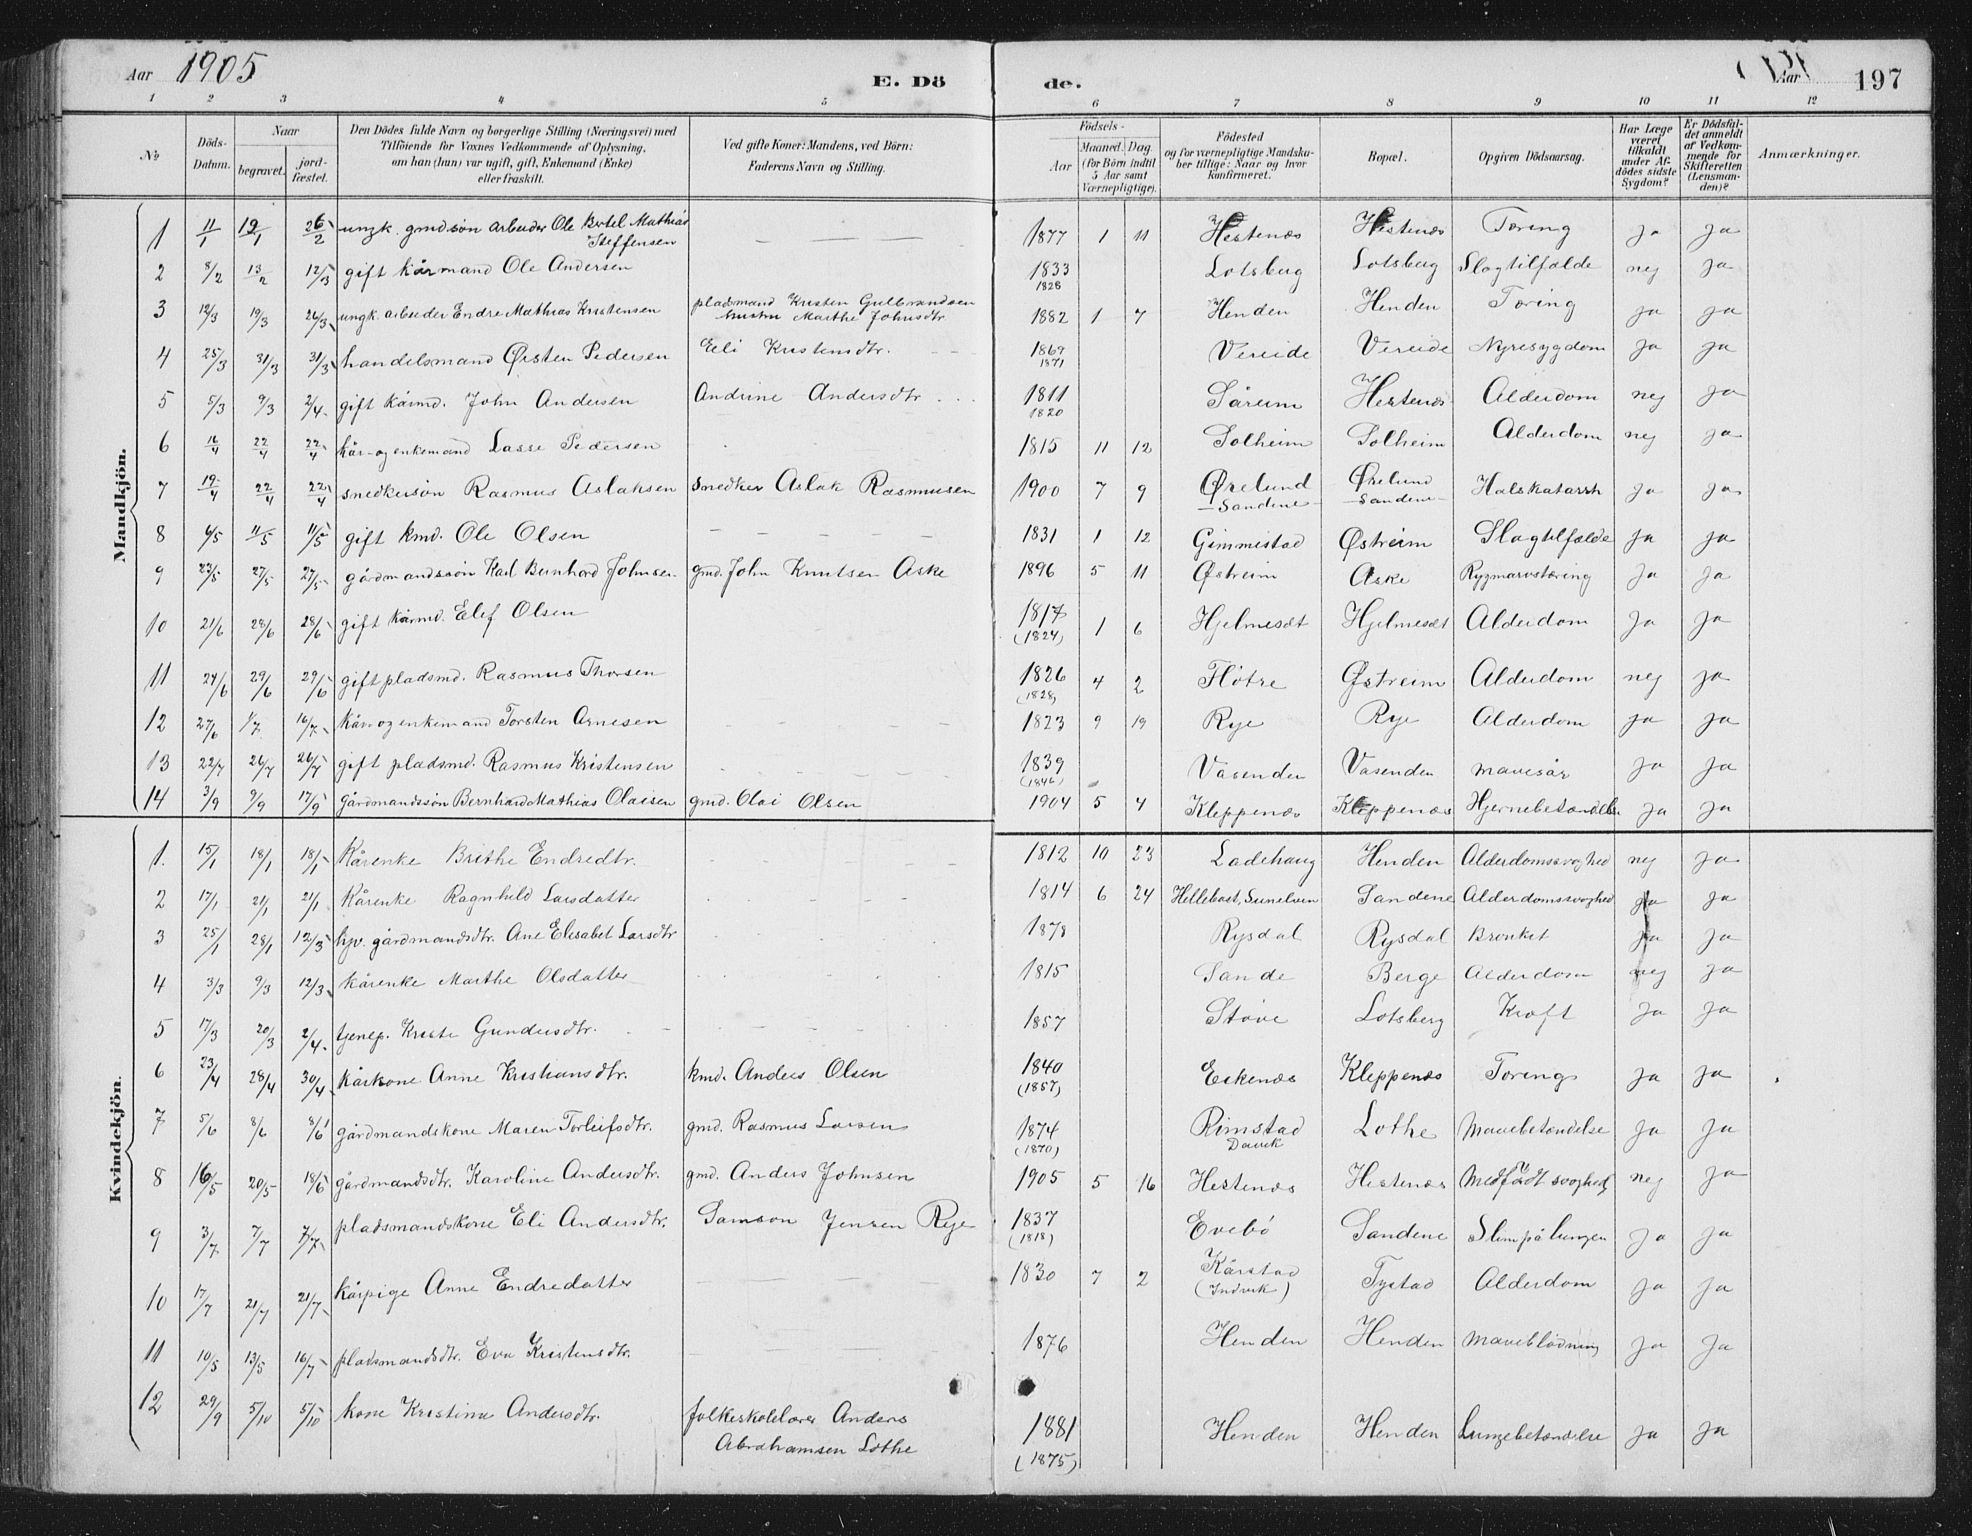 Aar 1905
E. Döde.
Aar 197
1 2 3 4 5 6 7 8 9 10 11 12
No
Döds-Datum.
Naar
begravet.
jordfæstet.
Den Dödes fulde Navn og borgerlige Stilling (Næringsvei) med
Tilföiende for Voxnes Vedkommende af Oplysning,
om han (hun) var ugift, gift, Enkemand (Enke)
eller fraskilt.
Ved gifte Koner: Mandens, ved Börn:
Faderens Navn og Stilling.
Födsels-
Aar
Maaned. Dag.
(for Börn indtil
5 Aar samt
Værnepligtige).
Födested
og for værnepligtige Mandska-
ber tillige: Naar og hvor
konfirmeret.
Bopæl.
Opgiven Dödsaarsag.
Har Læge
været
tilkaldt
under Af-
dödes sidste
Sygdom?
Er Dödsfal-
det anmeldt
af Vedkom-
mende for
Skifteretten
(Lensman-
den)?
Anmærkninger.
Mandkjön.
1 11/1 19/1 26/2 ungk. gmdsön arbeider Ole Bertel Mathias Steffensen 1877 1 11 Hestenæs Hestenæs Tæring Ja Ja
2 8/2 13/2 12/3 gift kårmand Ole Andersen 1833 1828 Lotsberg Lotsberg Slagtilfælde nej Ja
3 12/3 19/3 26/3 ungk. arbeider Endre Mathias Kristensen pladsmand Kristen Gulbrandsen hustru Marthe Johnsdtr 1882 1 7 Henden Henden Tæring Ja Ja
4 25/3 31/3 31/3 handelsmand Ørsten Pedersen Eli Kristensdtr. 1869 1871 Vereide Vereide Nyresygdom Ja Ja
5 5/3 9/3 2/4 gift kårmd. John Andersen Andrine Andersdtr 1811 1820 Såreim Hestenæs Alderdom nej Ja
6 16/4 22/4 22/4 kår- og enkemand Lasse Pedersen 1815 11 12 Solheim Solheim Alderdom nej Ja
7 19/4 22/4 22/4 snedkersön Rasmus Aslaksen Snedker Aslak Rasmussen 1900 7 9 Ørelund Sandene Ørelund Sandene Halskatarrh Ja Ja
8 6/5 11/5 11/5 gift kmd. Ole Olsen 1831 1 12 Gimmestad Østreim Slagtilfælde Ja Ja
9 23/5 27/5 27/5 gårdmandssön Karl Bernhard Johnsen gmd. John Knutsen Aske 1896 5 11 Østreim Aske Rygmarvstæring Ja Ja
10 21/6 28/6 28/6 gift kårmd. Elef Olsen 1817 (1824) 1 6 Hjelmesæt Hjelmesæt Alderdom Ja Ja
11 24/6 29/6 29/6 gift pladsmd. Rasmus Thorsen 1826 (1828) 4 2 Flötre Østreim Alderdom nej Ja
12 27/6 1/7 16/7 kår- og enkemand Torsten Arnesen 1823 9 19 Rye Rye Alderdom Ja Ja
13 22/7 26/7 26/7 gift pladsmd. Rasmus Kristensen 1839 (1846) Vasenden Vasenden mavesår Ja Ja
14 3/9 9/9 17/9 gårdmandssön Bernhard Mathias Olaisen gmd. Olai Olsen 1904 5 4 Kleppenæs Kleppenæs Hjernebetændelse Ja Ja
Kvindekjön.
1. 15/1 18/1 18/1 Kårenke Brithe Endredtr. 1812 10 23 Ladehaug Henden Alderdomssvaghed nej Ja
2 17/1 21/1 21/1 Kårenke Ragnhild Larsdatter 1814 6 24 Hellebost, Sunelven Sandene Alderdomssvaghed Ja Ja
3 25/1 28/1 12/3 hjv. gårdmandsdtr. Ane Elisabet Larsdtr 1878 Rysdal Rysdal Bronkit Ja Ja
4 3/3 9/3 12/3 kårenke Marthe Olsdatter 1815 Sande Berge Alderdom nej Ja
5 17/3 20/3 2/4 tjenep. Kriste Gundersdtr. 1857 Støve Lotsberg Kræft Ja Ja
6 23/4 28/4 30/4 kårkone Anne Kristiansdtr. kmd. Anders Olsen 1840 (1857) Eskenæs Kleppenæs Tæring Ja Ja
7 5/6 8/6 8/6 gårdmandskone Maren Torleifsdtr. gmd. Rasmus Larsen 1874 (1870) Rimstad Davik Lothe Mavebetændelse Ja Ja
8 16/5 20/5 18/6 gårdmandsdtr. Karoline Andersdtr. gmd. Anders Johnsen 1905 5 16 Hestenæs Hestenæs Medfödt svaghed nej Ja
9 3/7 7/7 7/7 pladsmandskone Eli Andersdtr. Samson Jensen Rye 1837 (1818) Evebö Sandene Slim på lungen Ja Ja
10 17/7 21/7 21/7 kårpige Anne Endredatter 1830 7 2 Kårstad (Indvik) Tystad Alderdom Ja Ja
11 10/5 13/5 16/7 pladsmandsdtr. Eva Kristensdtr. 1876 Henden Henden Maveblödning Ja Ja
12 29/9 5/10 5/10 kone Kristine Andersdtr. folkeskolelærer Anders Abrahamsen Lothe 1881 (1875) Henden Henden Lungebetændelse Ja Ja